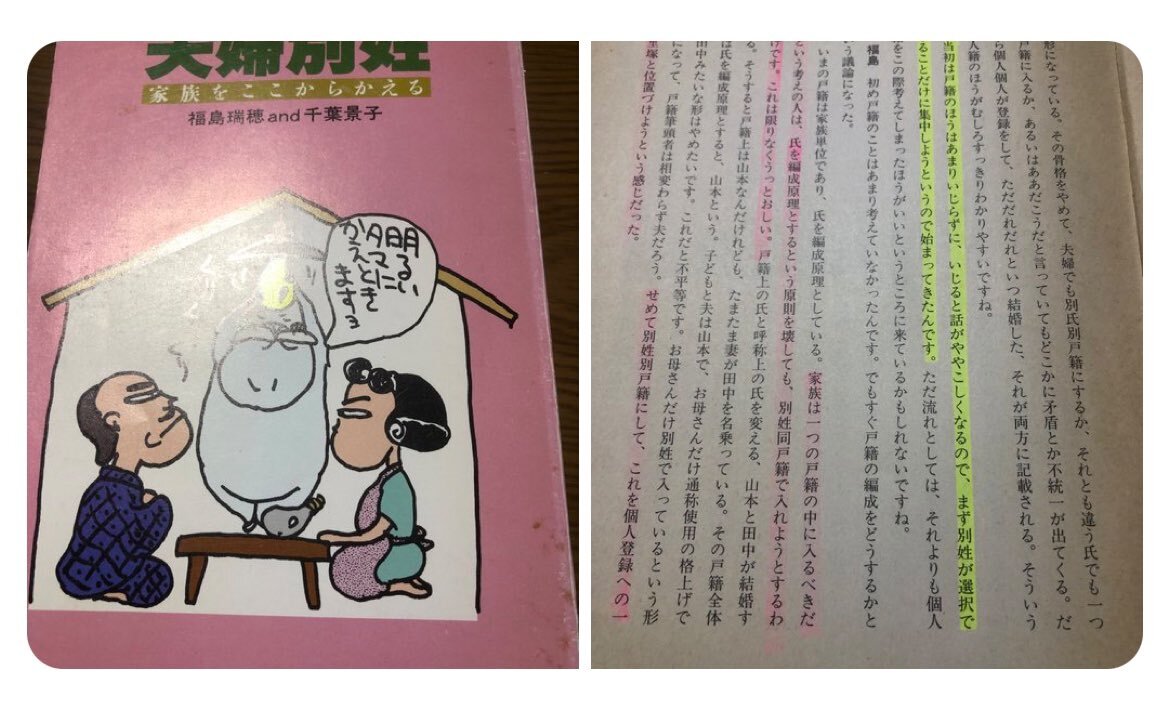 夫婦別姓
家族をここからかえる
福島瑞穂and千葉景子
明るい
タマに
かえとき
ますョ
形になっている。その骨格をやめて、夫婦でも別氏別戸籍にするか、それとも違う氏でも一つ
戸籍に入るか、あるいはああだこうだと言っていてもどこかに矛盾とか不統一が出てくる。だ
ら個人個人が登録をして、ただだれだれといつ結婚した、それが両方に記載される。そういう
人籍のほうがむしろすっきりわかりやすいですね。
当初は戸籍のほうはあまりいじらずに、いじると話がややこしくなるので、まず別姓が選択で
ることだけに集中しようというので始まってきたんです。ただ流れとしては、それよりも個人
をこの際考えてしまったほうがいいというところに来ているかもしれないですね。
福島　初め戸籍のことはあまり考えていなかったんです。でもすぐ戸籍の編成をどうするかと
う議論になった。
いまの戸籍は家族単位であり、氏を編成原理としている。家族は一つの戸籍の中に入るべきだ
という考えの人は、氏を編成原理とするという原則を壊しても、別姓同戸籍で入れようとするわ
けです。これは限りなくうっとおしい。戸籍上の氏と呼称上の氏を変える、山本と田中が結婚す
る。そうすると戸籍上は山本なんだけれども、たまたま妻が田中を名乗っている。その戸籍全体
は氏を編成原理とすると、山本という。子どもと夫は山本で、お母さんだけ通称使用の格上げで
田中みたいな形はやめたいです。これだと不平等です。お母さんだけ別姓で入っているという形
になって、戸籍筆頭者は相変わらず夫だろう。せめて別姓別戸籍にして、これを個人登録への一
里塚と位置づけようという感じだった。